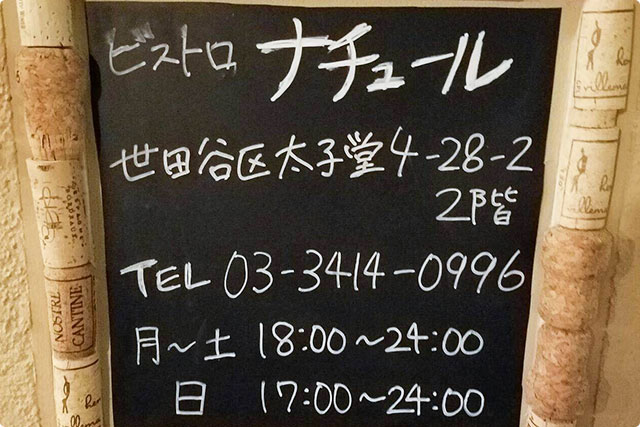 ビストロ ナチュール
世田谷区太子堂4-28-2
2階
TEL 03-3414-0996
月～土 18:00～24:00
日 17:00～24:00
NOSTRE
CANTINE